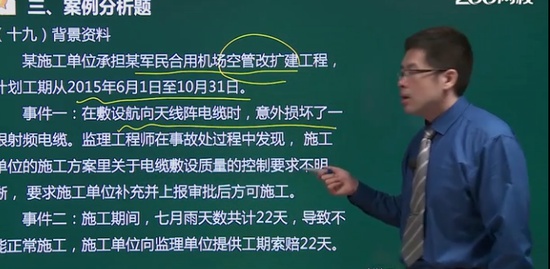 三、案例分析题
十九）背景资料
某施工单位承担某军民合用机场空管改扩建工程，
计划工期从2015年6月1日至10月31日。
事件一：在敷设航向天线阵电缆时，意外损坏了一
根射频电缆。监理工程师在事故处过程中发现，施工
单位的施工方案里关于电缆敷设质量的控制要求不明
晰，要求施工单位补充并上报审批后方可施工。
事件二：施工期间，七月雨天数共计22天，导致不
能正常施工，施工单位向监理单位提供工期索赔22天。